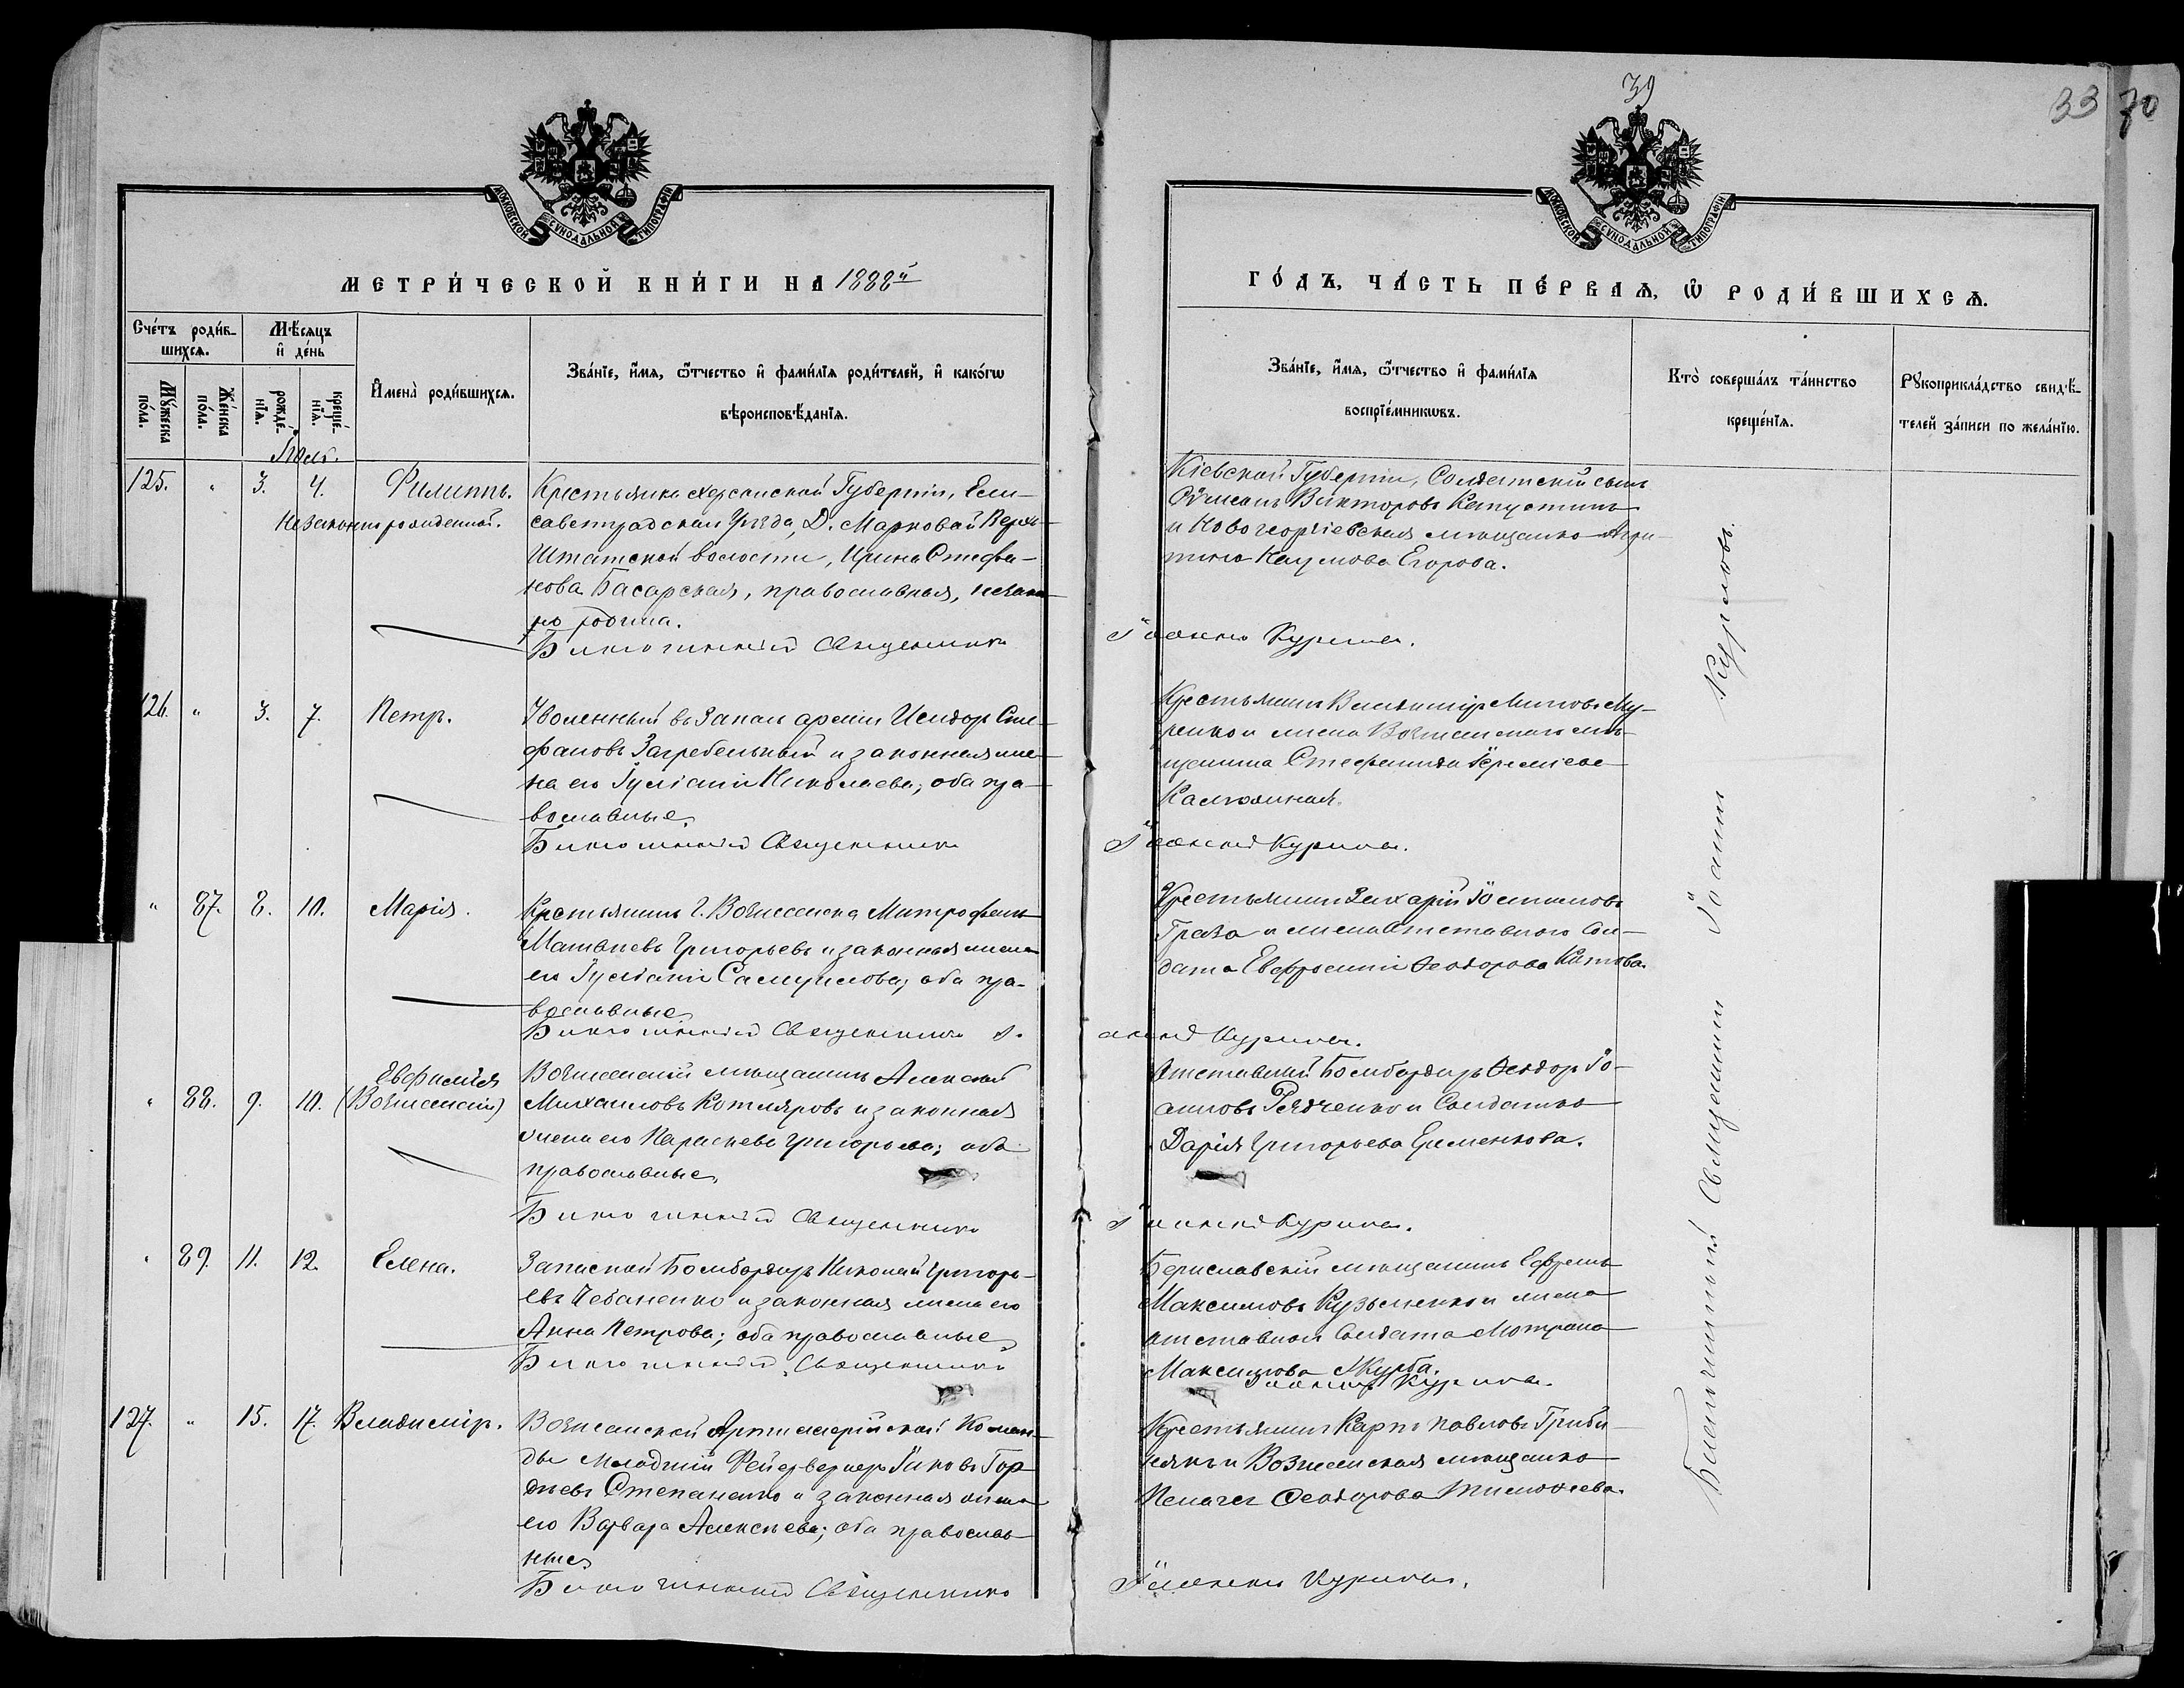 39
33 70
МОСКОВСКОЙ СѴНОДАЛЬНОЙ ТИПОГРАФІИ
МОСКОВСКОЙ СѴНОДАЛЬНОЙ ТИПОГРАФІИ
МЕТРИ́ЧЕСКОЙ КНИ́ГИ НА 1888й
ГО́ДЪ, ЧА́СТЬ ПЕ́РВАѦ, Ѿ РОДИ́ВШИХСѦ.
Сче́тъ роди́в-
шихсѧ.
Мѣ́сяцъ
и҆ де́нь
Мꙋ́жеска
по́ла.
Же́нска
по́ла.
рожде́-
нїѧ.
креще́-
нїѧ.
И҆мена̀ роди́вшихсѧ.
Зва́нїе, и҆́мѧ, ѻ҆́тчество и҆ фами́лїѧ роди́телей, и҆ како́гѡ
вѣроисповѣ́данїѧ.
Зва́нїе, и҆́мѧ, ѻ҆́тчество и҆ фами́лїѧ
воспрїе́мникѡвъ.
Кто̀ соверша́лъ та́инство
креще́нїѧ.
Рꙋкоприкла́дство свидѣ́-
телей за́писи по жела́нїю.
Іюль.
125. " 3. 4. Филиппъ.
Незаконнорожденный.
Крестьянка Херсонской Губерніи, Ели-
саветградскаго Уѣзда, Д. Марковой
Штатской волости, Ирина Стефа-
нова Басарская, православная, незакон-
но родила.
Благочинный Священникъ
Кіевской Губерніи, Солдатскій сынъ
Викторовъ Капустинъ
и Новогеоргіевская мѣщанка Агри-
пина Наумова Егорова.
Іоаннъ Куриловъ.
126. " 3. 7. Петръ.
Уволенный въ запасъ арміи Исидоръ Сте-
фановъ Загребельный и законная же-
на его Іуліанія Николаева; оба пра-
вославные.
Благочинный Священникъ
Крестьянинъ Владиміръ
и жена Вознесенскаго мѣ-
щанина Стефанида Іереміева
Іоаннъ Куриловъ.
" 87. 8. 10. Марія.
Крестьянинъ г. Вознесенска Митрофанъ
Матвѣевъ Григорьевъ и законная жена
его Іуліанія Самуилова; оба пра-
вославные
Благочинный Священникъ І.
Крестьянинъ Захарій
и жена отставного Сол-
дата Евфросинія Ѳеодорова Китова.
Куриловъ.
" 88. 9. 10. Евфимія
(Вознесенскъ)
Вознесенскій мѣщанинъ Алексѣй
Михаиловъ Котляровъ и законная
жена его Параскева Григорьева; оба
православные,
Благочинный Священникъ
Отставный Бомбардиръ Ѳеодоръ Іо-
анновъ Рядченко и Солдатка
Дарія Григорьева Ерменкова.
Іоаннъ Куриловъ.
" 89. 11. 12. Елена.
Запасной Бомбардиръ Николай Григорь-
евъ Чебаненко и законная жена его
Анна Петрова; оба православные
Благочинный Священникъ
Бериславскій мѣщанинъ Ефремъ
Максимовъ Кузьменко и жена
отставного Солдата Мотрона
Максимова
Іоаннъ Куриловъ.
127. " 15. 17. Владиміръ.
Вознесенской Артиллерійской Коман-
ды младшій Фейерверкеръ Іаковъ Гор-
дѣевъ Степаненко и законная жена
его Варвара Алексѣева; оба православ-
ные
Благочинный Священникъ
Крестьянинъ Карпъ Павловъ
и Вознесенская мѣщанка
Пелагея Ѳеодорова Тимоѳеева.
Іоаннъ Куриловъ.
Благочинный Священникъ Іоаннъ Куриловъ.